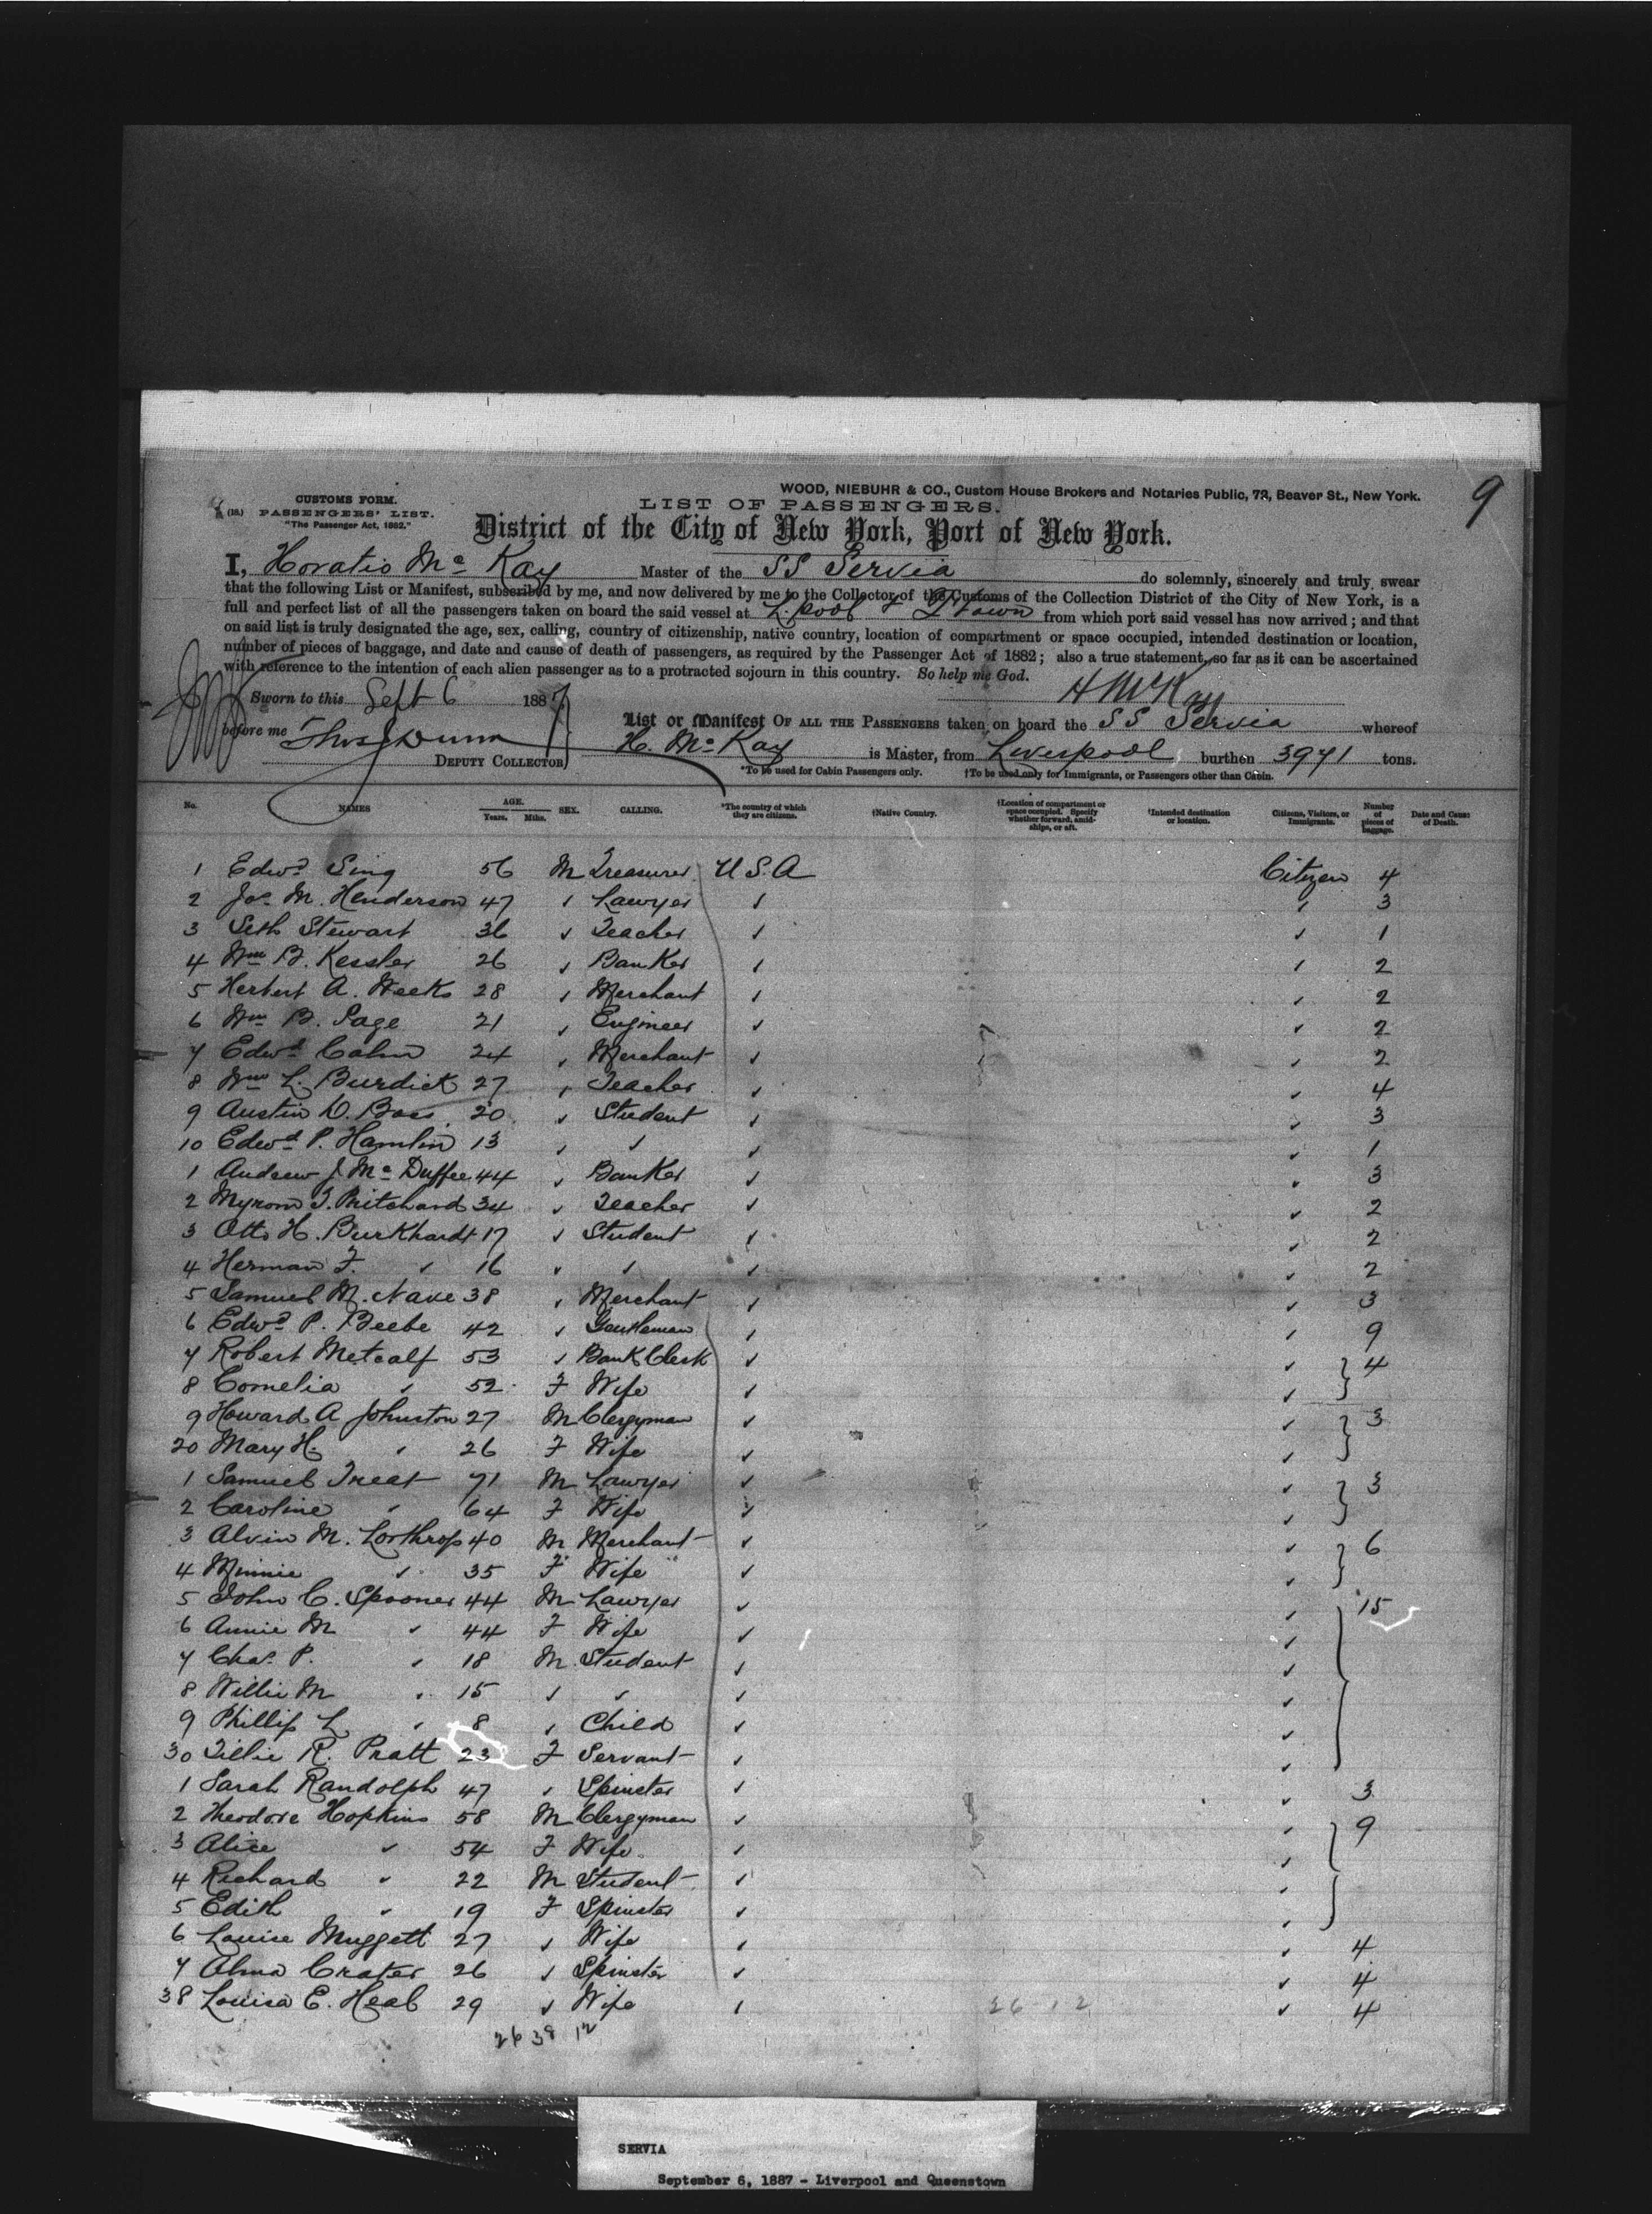 WOOD, NIEBUHR & CO., Custom House Brokers and Notaries Public, 72, Beaver St., New York.
9
CUSTOMS FORM.
(18.) PASSENGERS' LIST.
"The Passenger Act, 1882."
LIST OF PASSENGERS.
District of the City of New York, Port of New York.
I, Horatio Mc Kay Master of the SS Servia do solemnly, sincerely and truly swear
that the following List or Manifest, subscribed by me, and now delivered by me to the Collector of the Customs of the Collection District of the City of New York, is a
full and perfect list of all the passengers taken on board the said vessel at L.pool & Qtown from which port said vessel has now arrived; and that
on said list is truly designated the age, sex, calling, country of citizenship, native country, location of compartment or space occupied, intended destination or location,
number of pieces of baggage, and date and cause of death of passengers, as required by the Passenger Act of 1882; also a true statement, so far as it can be ascertained
with reference to the intention of each alien passenger as to a protracted sojourn in this country. So help me God.
Sworn to this Sept 6 1887
H McKay
before me Thos J Dunn
DEPUTY COLLECTOR
List or Manifest OF ALL THE PASSENGERS taken on board the SS Servia whereof
H. Mc Kay is Master, from Liverpool burthen 3971 tons.
*To be used for Cabin Passengers only. †To be used only for Immigrants, or Passengers other than Cabin.
No. NAMES AGE. Years. Mths. SEX. CALLING. *The country of which they are citizens. †Native Country. †Location of compartment or space occupied. Specify whether forward, amidships, or aft. †Intended destination or location. Citizens, Visitors, or Immigrants. Number of pieces of baggage. Date and Cause of Death.
1 Edwd Sing 56 M Treasurer U.S.A Citizen 4
2 Jos M. Henderson 47 ✓ Lawyer ✓ ✓ 3
3 Seth Stewart 36 ✓ Teacher ✓ ✓ 1
4 Wm B. Kessler 26 ✓ Banker ✓ ✓ 2
5 Herbert A. Weeks 28 ✓ Merchant ✓ ✓ 2
6 Wm B. Page 21 ✓ Engineer ✓ ✓ 2
7 Edwd Cahn 24 ✓ Merchant ✓ ✓ 2
8 Wm L. Burdick 27 ✓ Teacher ✓ ✓ 4
9 Austin D. 20 ✓ Student ✓ ✓ 3
10 Edwd P. Hamlin 13 ✓ ✓ ✓ ✓ 1
1 Andrew J. Mc Duffee 44 ✓ Banker ✓ ✓ 3
2 Myron T. Pritchard 34 ✓ Teacher ✓ ✓ 2
3 Otto H. Burkhardt 17 ✓ Student ✓ ✓ 2
4 Herman F. ✓ 16 ✓ ✓ ✓ ✓ 2
5 Samuel M. Nave 38 ✓ Merchant ✓ ✓ 3
6 Edwd P. Beebe 42 ✓ Gentleman ✓ ✓ 9
7 Robert Metcalf 53 ✓ Bank Clerk ✓ ✓ 4
8 Cornelia ✓ 52 F Wife ✓ ✓
9 Howard A Johnston 27 M Clergyman ✓ ✓ 3
20 Mary H. ✓ 26 F Wife ✓ ✓
1 Samuel Treat 71 M Lawyer ✓ ✓ 3
2 Caroline ✓ 64 F Wife ✓ ✓
3 Alvin M. Lorthrop 40 M Merchant ✓ ✓ 6
4 Minnie ✓ 35 F Wife ✓ ✓
5 John C. Spooner 44 M Lawyer ✓ ✓ 15
6 Annie M ✓ 44 F Wife ✓ ✓
7 Chas. P. ✓ 18 M Student ✓ ✓
8 Willie M ✓ 15 ✓ ✓ ✓ ✓
9 Phillip L ✓ 8 ✓ Child ✓ ✓
30 Tillie R. Pratt 23 F Servant ✓ ✓
1 Sarah Randolph 47 ✓ Spinster ✓ ✓ 3
2 Theodore Hopkins 58 M Clergyman ✓ ✓ 9
3 Alice ✓ 54 F Wife ✓ ✓
4 Richard ✓ 22 M Student ✓ ✓
5 Edith ✓ 19 F Spinster ✓ ✓
6 Louise Muggett 27 ✓ Wife ✓ ✓ 4
7 Alma Crater 26 ✓ Spinster ✓ ✓ 4
38 Louisa E. Heal 29 ✓ Wife ✓ ✓ 4
26 38 12
26 12
SERVIA
September 6, 1887 - Liverpool and Queenstown